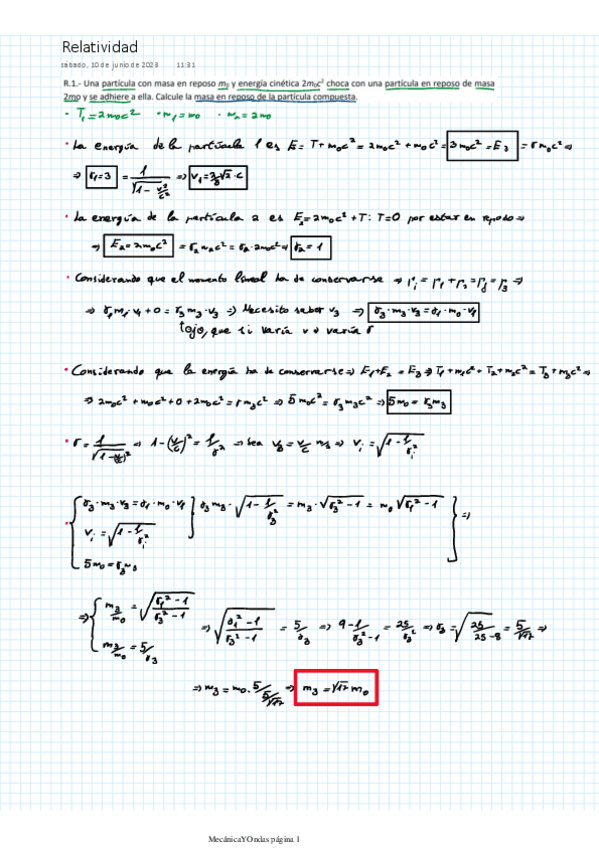 Relatividad
sábado, 10 de junio de 2023 11:31
R.1.- Una partícula con masa en reposo m₀ y energía cinética 2m₀c² choca con una partícula en reposo de masa
2m₀ y se adhiere a ella. Calcule la masa en reposo de la partícula compuesta.
· T₁=2m₀c² · m₁=m₀ · m₂=2m₀
· La energía de la partícula 1 es E=T+m₀c²=2m₀c²+m₀c²=3m₀c²=E₃=γm₀c²⇒
⇒ γ₁=3 = 1/√(1-v²/c²) ⇒ v₁=2/3√2·c
· La energía de la partícula 2 es E₂=2m₀c²+T: T=0 por estar en reposo⇒
⇒ E₂=2m₀c² =γ₂m₂c²=γ₂·2m₀c²⇒ γ₂=1
· Considerando que el momento lineal ha de conservarse ⇒ p_i=p₁+p₂=p_f=p₃⇒
⇒ γ₁m₁·v₁+0=γ₃m₃·v₃ ⇒ Necesito saber v₃ ⇒ γ₃·m₃·v₃=γ₁·m₀·v₁
↳ojo, que si varía v ⇒ varía γ
· Considerando que la energía ha de conservarse⇒ E₁+E₂=E₃⇒T₁+m₁c²+T₂+m₂c²=T₃+m₃c²⇒
⇒ 2m₀c²+m₀c²+0+2m₀c²=γm₃c²⇒ 5m₀c²=γ₃m₃c²⇒ 5m₀=γ₃m₃
· γ=1/√(1-(v/c)²) ⇒ 1-(v/c)²=1/γ² ⇒ v_i=√(1-1/γ_i²)
γ₃·m₃·v₃=γ₁·m₀·v₁ } γ₃m₃·√(1-1/γ₃²)=m₃·√(γ₃²-1)=m₀√(γ₁²-1) } ⇒
v_i=√(1-1/γ_i²)
5m₀=γ₃m₃
⇒ { m₃/m₀=√((γ₁²-1)/(γ₃²-1)) ⇒ √((γ₁²-1)/(γ₃²-1))=5/γ₃ ⇒ (9-1)/(γ₃²-1)=25/γ₃² ⇒ γ₃=√(25/(25-8))=5/√17 ⇒
m₃/m₀=5/γ₃
⇒ m₃=m₀·5/(5/√17) ⇒ m₃=√17 m₀
MecánicaYOndas página 1